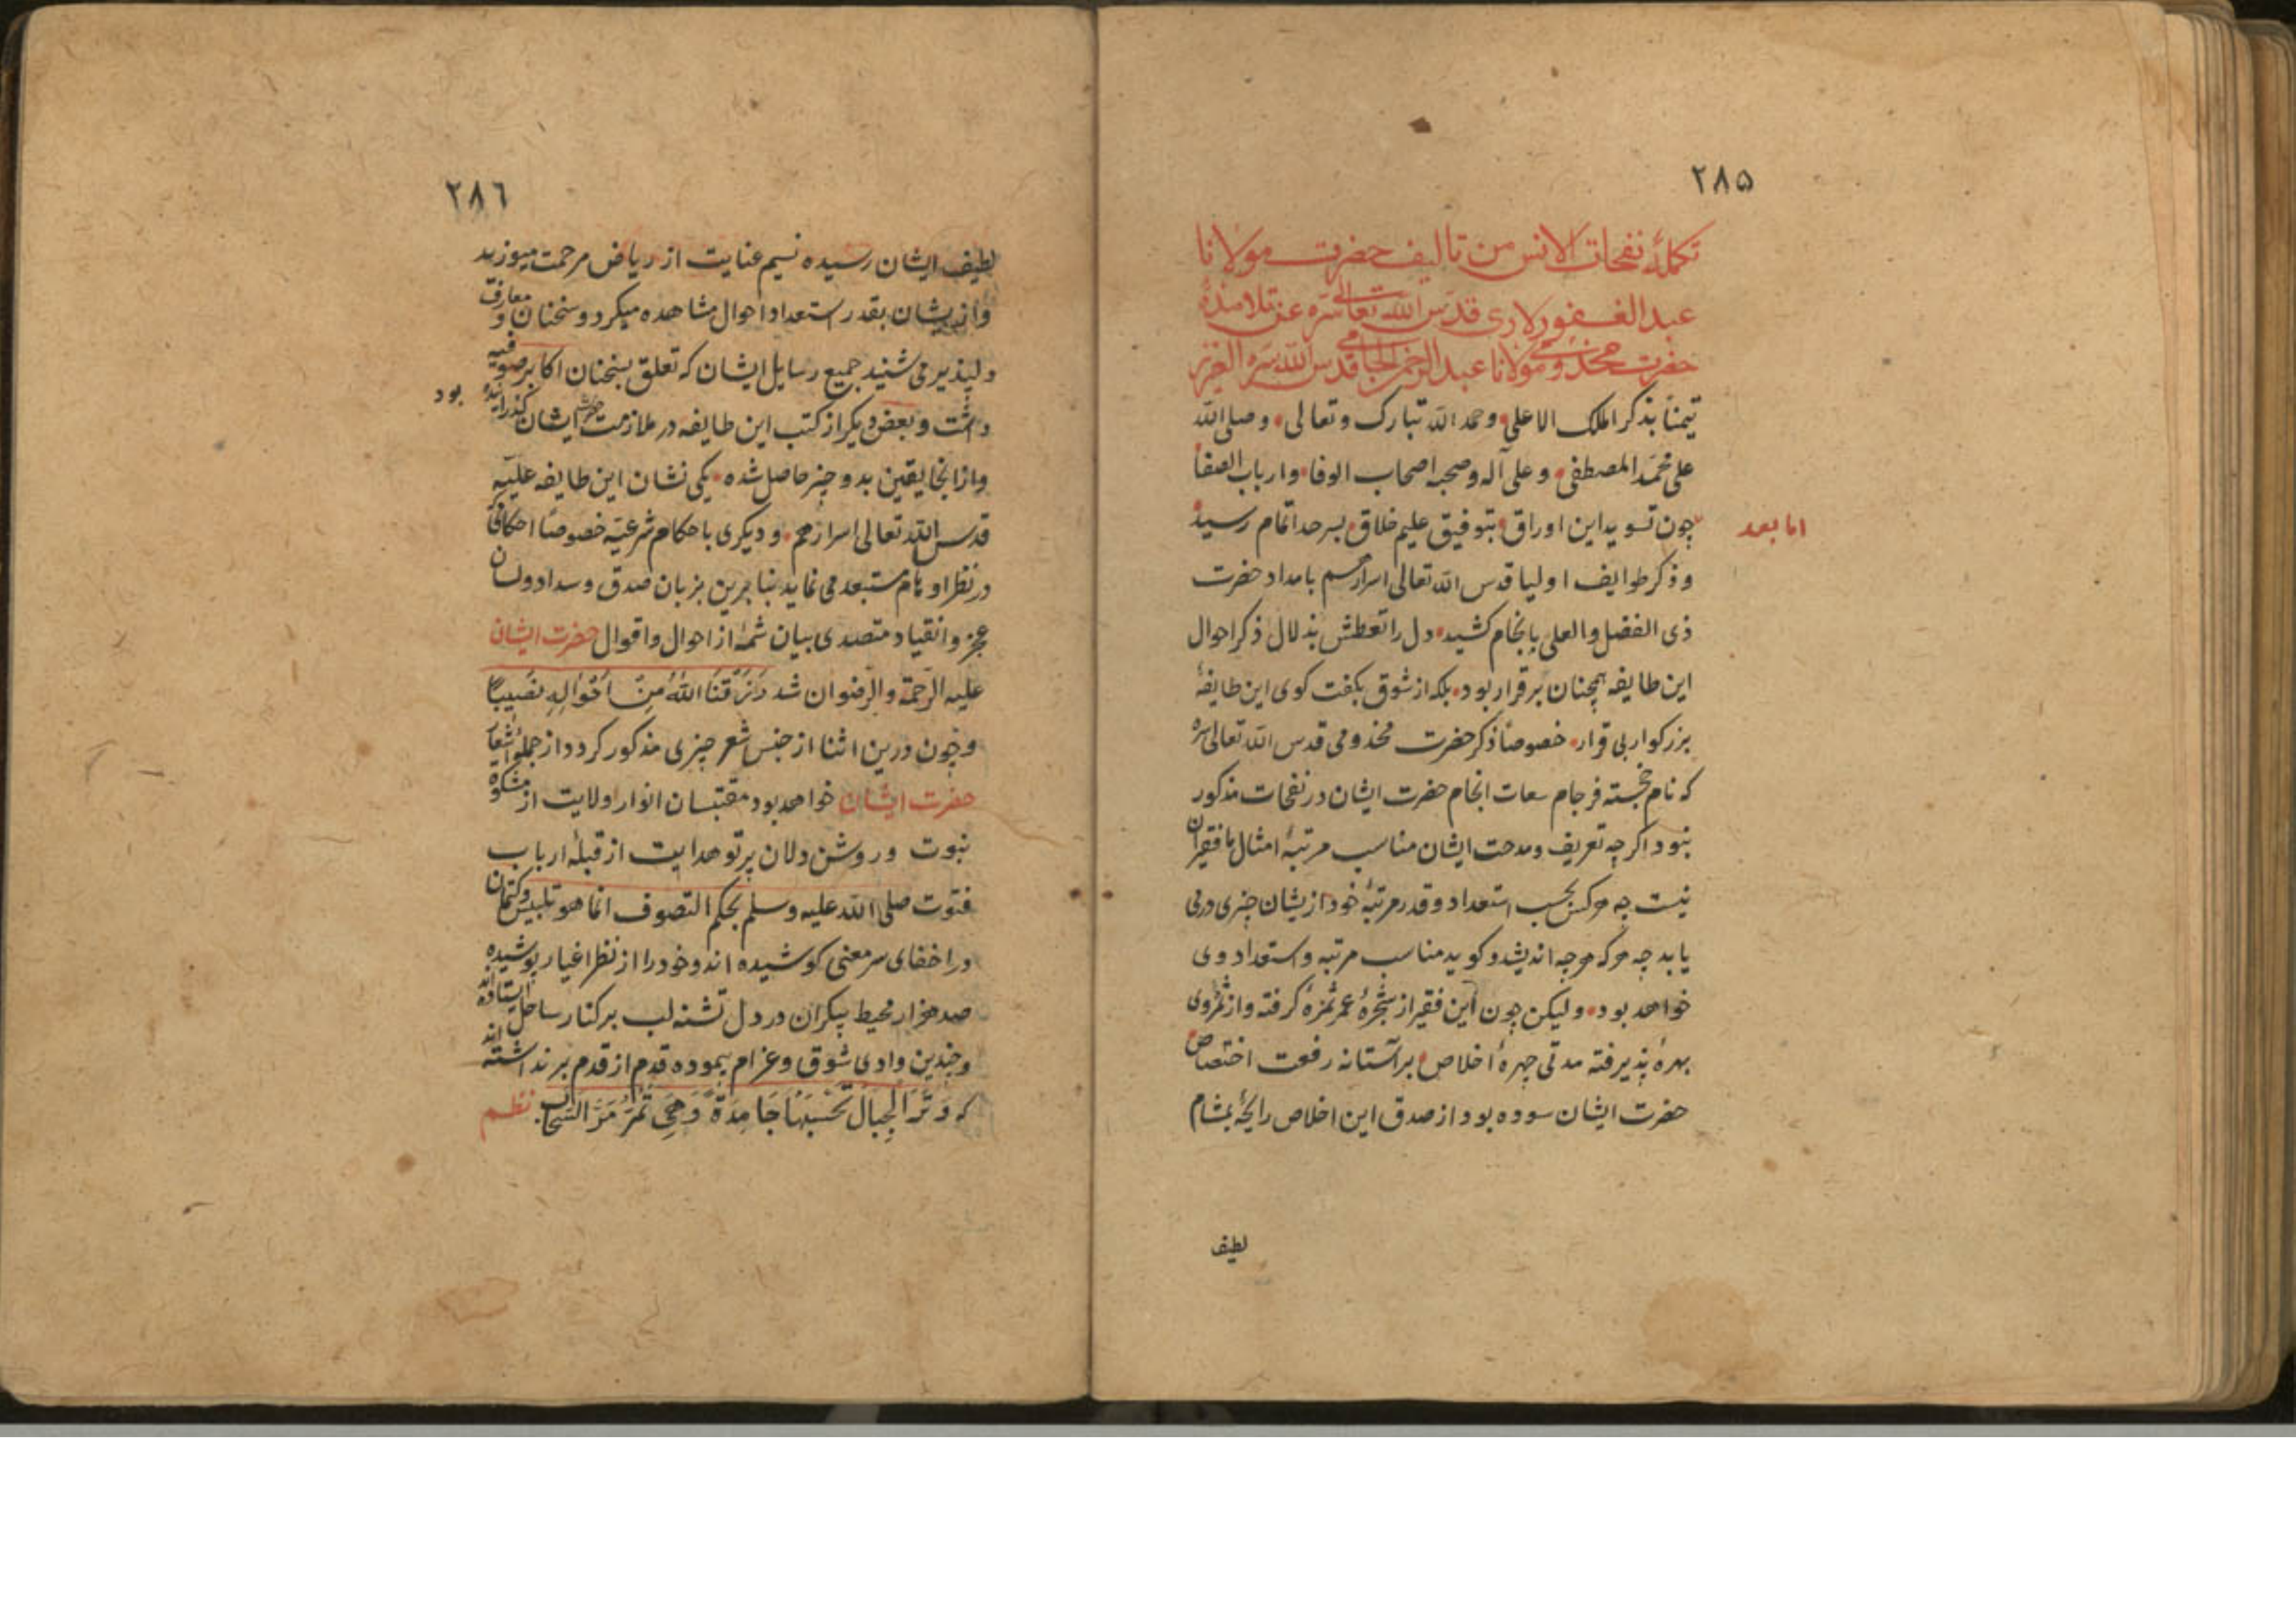 ۲۸۵
تکملهٔ نفحات الانس من تالیف حضرت مولانا
عبد الغفور لاری قدس الله تعالی سره عن تلامذهٔ
حضرت مخدومی مولانا عبد الرحمن الجامی قدس الله سره العزیز
تیمناً بذکر الملک الاعلی و حمد الله تبارک و تعالی و صلی الله
علی محمد المصطفی و علی آله و صحبه اصحاب الوفا و ارباب الصفا
اما بعد
چون تسوید این اوراق بتوفیق علیم خلاق بسرحد اتمام رسید
و ذکر طوایف اولیا قدس الله تعالی اسرارهم بامداد حضرت
ذی الفضل والعلی بانجام کشید دل را تعطش بذلال ذکر احوال
این طایفه همچنان برقرار بود بلکه از شوق بکفت کوی این طایفهٔ
بزرکوار بی قرار خصوصاً ذکر حضرت مخدومی قدس الله تعالی سره
که نام خجسته فرجام سعات انجام حضرت ایشان در نفحات مذکور
نبود اکرچه تعریف و مدحت ایشان مناسب مرتبهٔ امثال ما فقیران
نیست چه هرکس بحسب استعداد و قدر مرتبهٔ خود از یشان چیزی درمی
یابد چه هرکه هرچه اندیشد و کوید مناسب مرتبه و استعداد وی
خواهد بود ولیکن چون این فقیر از شجرهٔ عمر ثمزهٔ کرفته و از ثمرهٔ وی
بهرهٔ پذیرفته مدتی چهرهٔ اخلاص بر آستانه رفعت اختصاص
حضرت ایشان سوده بود از صدق این اخلاص رایحهٔ بمشام
لطیف
۲۸٦
لطیف ایشان رسیده نسیم عنایت از ریاض مرحمت میوزید
و از یشان بقدر استعداد احوال مشاهده میکرد و سخنان و معارف
دلپذیر می شنید جمیع رسایل ایشان که تعلق بسخنان اکابر صوفیه
داشت و بعض دیکر از کتب این طایفه در ملازمت حضرت ایشان کذرانیده بود
و از انجا یقین بدو چیز حاصل شده یکی نشان این طایفه علیّه
قدس الله تعالی اسرارهم و دیکری باحکام شرعیّه خصوصاً احکامی که
در نظر اوهام مستبعد می نماید بنابرین بزبان صدق و سداد و لسان
عجز و انقیاد متصدی بیان شمهٔ از احوال و اقوال حضرت ایشان
علیه الرحمة والرضوان شد رَزَقَنَا اللّٰهُ مِنْ اَحْوَالِهِ نَصِیبًا
و چون درین اثنا از جنس شعر چیزی مذکور کردد از جملهٔ اشعار
حضرت ایشان خواهد بود مقتبسان انوار ولایت از مشکوة
نبوت و روشن دلان پرتو هدایت از قبلهٔ ارباب
فتوت صلی الله علیه وسلم بحکم التصوف انما هو تلبیس و کتمان
در اخفای سر معنی کوشیده اند و خود را از نظر اغیار پوشیده
صد هزار محیط بیکران در دل تشنه لب برکنار ساحل ایستاده اند
و چندین وادی شوق و غرام پیموده قدم از قدم برنداشته اند
که وَتَرَ الْجِبَالَ تَحْسَبُهَا جَامِدَةً وَهِیَ تَمُرُّ مَرَّ السَّحَابِ نظم